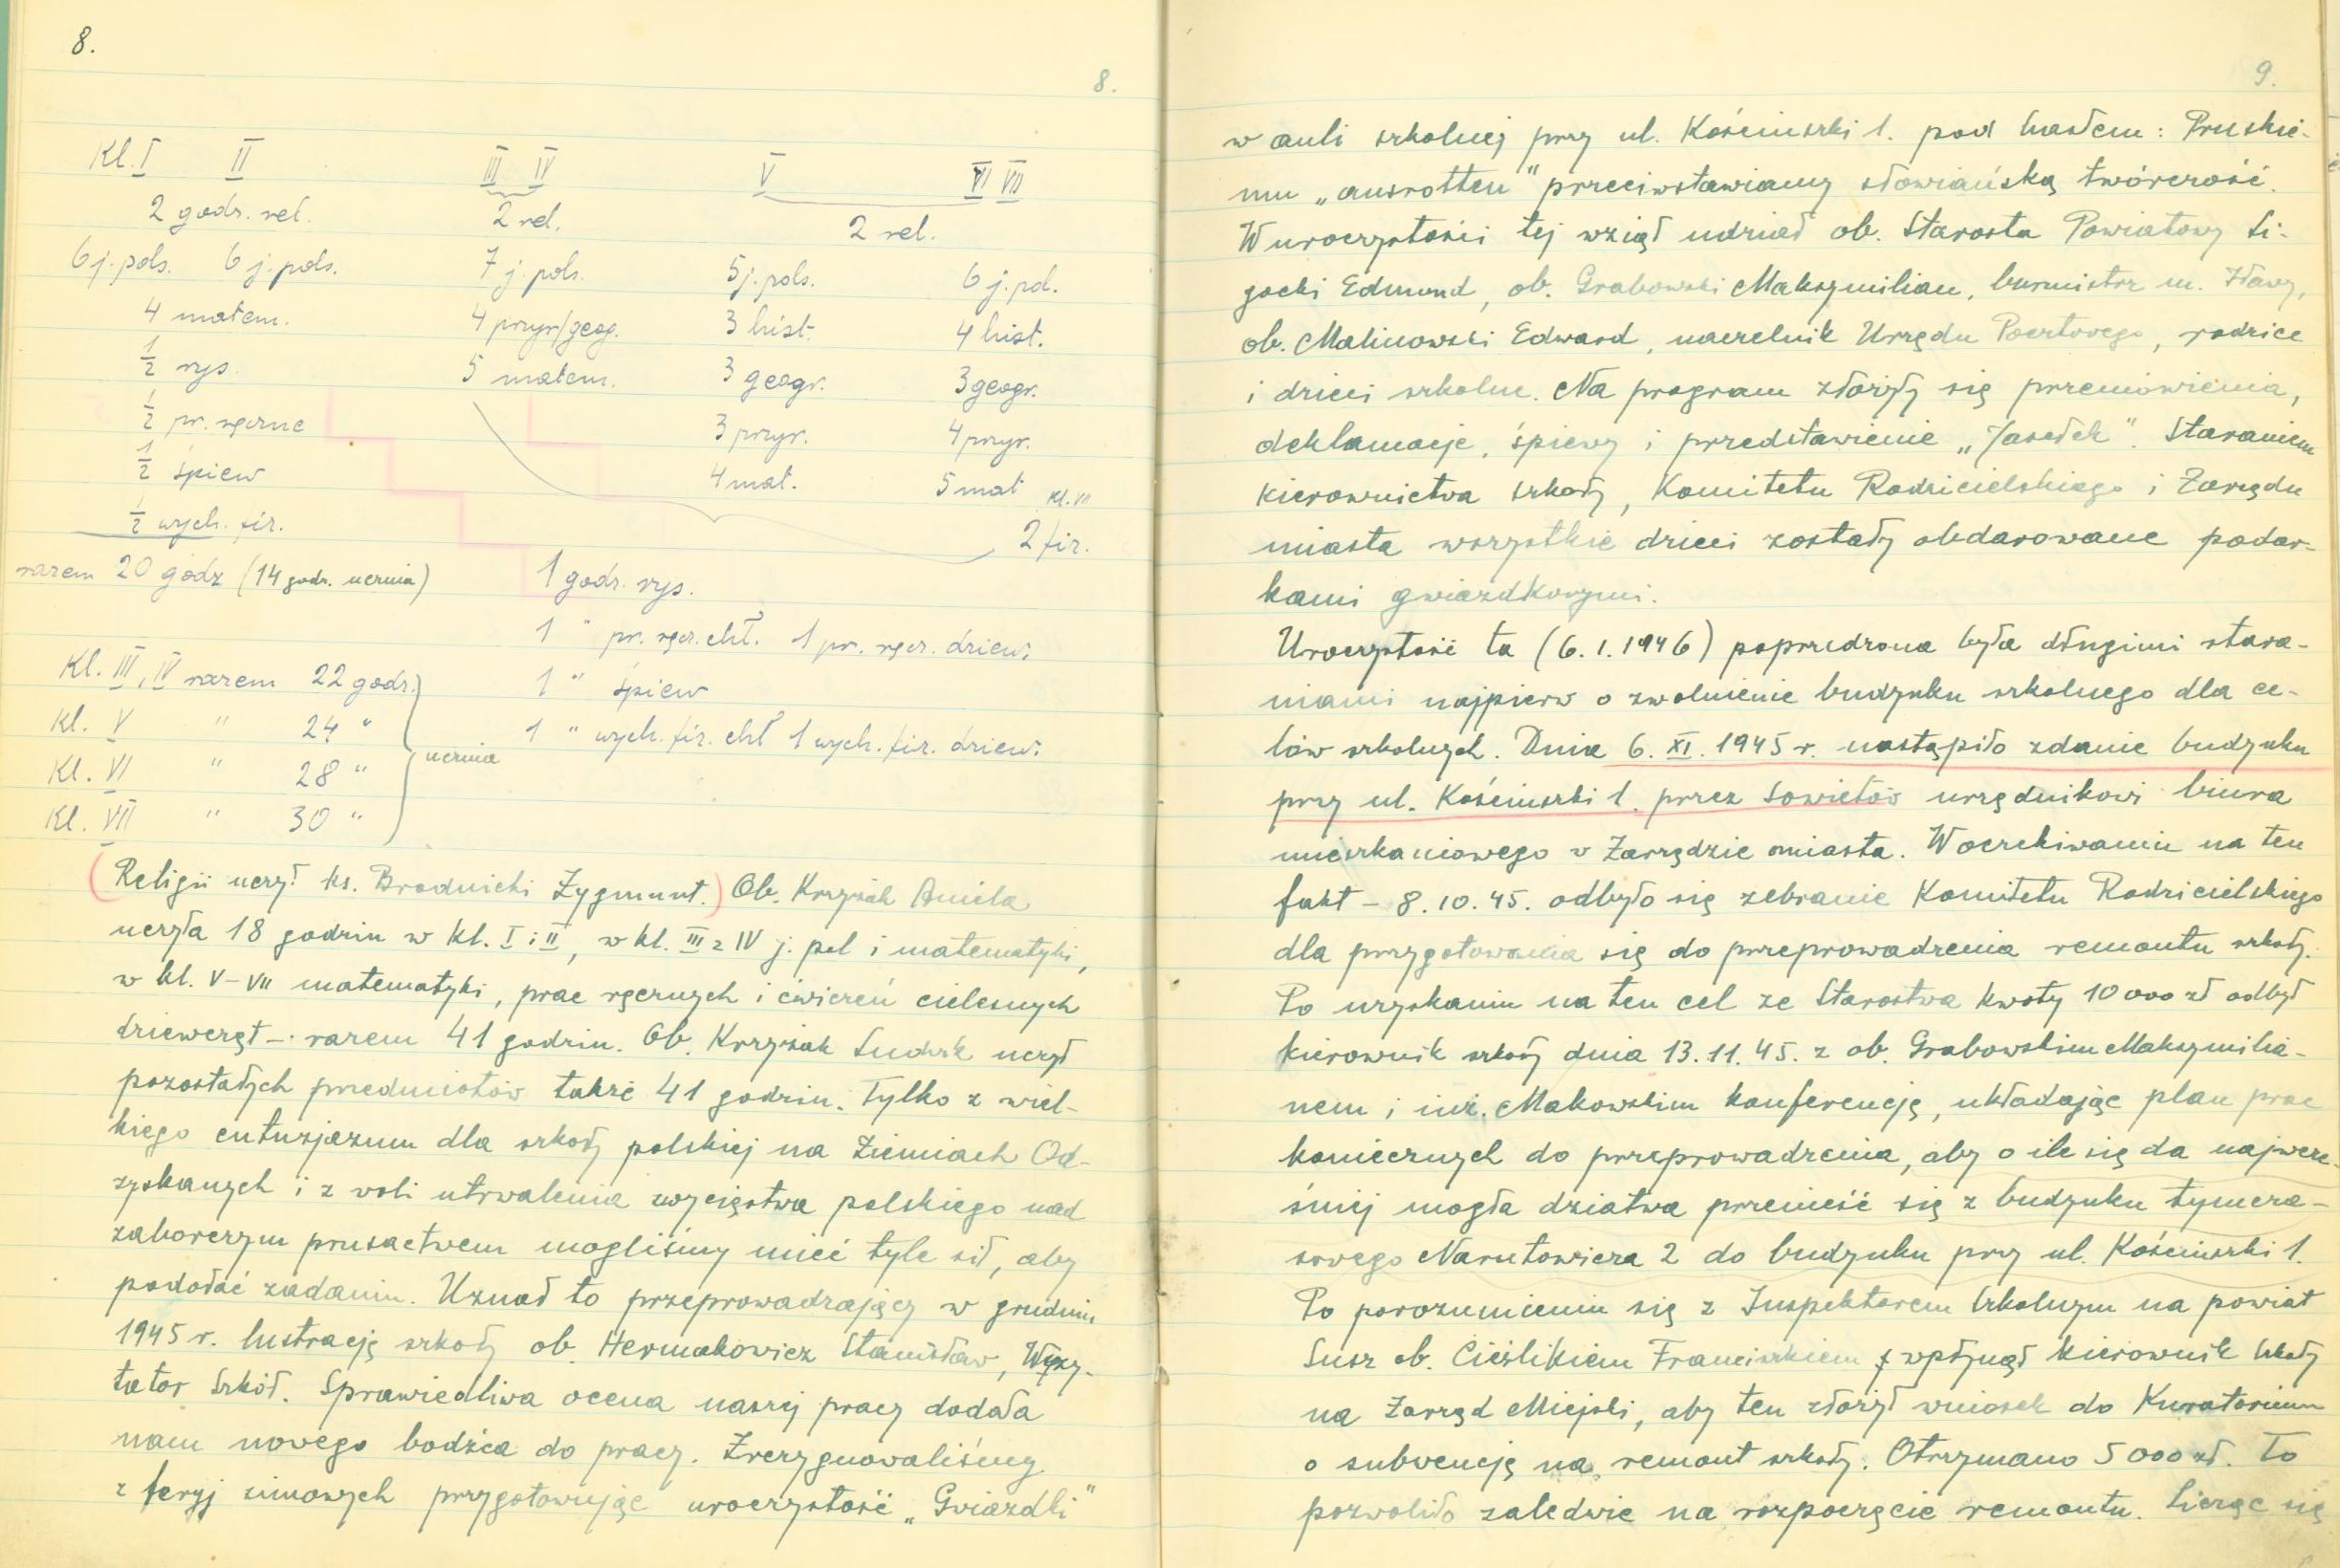 8.
8.
Kl. I II III IV V VI VII
2 godz. rel. 2 rel. 2 rel.
6 j. pols. 6 j. pols. 7 j. pols. 5 j. pols. 6 j. pol.
4 matem. 4 przyr/geog. 3 hist. 4 hist.
1/2 rys. 5 matem. 3 geogr. 3 geogr.
1/2 pr. ręczne 3 przyr. 4 przyr.
1/2 śpiew 4 mat. 5 mat Kl. VII
1/2 wych. fiz. 2 fiz.
razem 20 godz (14 godz. ucznia) 1 godz. rys.
1 " pr. ręcz. chł. 1 pr. ręcz. dziew.
Kl. III, IV razem 22 godz. 1 " śpiew
Kl. V " 24 " 1 " wych. fiz. chł 1 wych. fiz. dziew.
ucznia
Kl. VI " 28 "
Kl. VII " 30 "
(Religii uczył ks. Brodnicki Zygmunt.) Ob. Krzyżak Aniela
uczyła 18 godzin w kl. I i II, w kl. III z IV j. pol i matematyki,
w kl. V-VII matematyki, prac ręcznych i ćwiczeń cielesnych
dziewcząt - razem 41 godzin. Ob. Krzyżak Ludwik uczył
pozostałych przedmiotów także 41 godzin. Tylko z wiel-
kiego entuzjazmu dla szkoły polskiej na Ziemiach Od-
zyskanych i z woli utrwalenia zwycięstwa polskiego nad
zaborczym prusactwem mogliśmy mieć tyle sił, aby
podołać zadaniu. Uznał to przeprowadzający w grudniu
1945 r. lustrację szkoły ob. Hermakowicz Stanisław, Wizy-
tator Szkół. Sprawiedliwa ocena naszej pracy dodała
nam nowego bodźca do pracy. Zrezygnowaliśmy
z feryj zimowych przygotowując uroczystość „Gwiazdki"
9.
w auli szkolnej przy ul. Kościuszki 1. pod hasłem: Pruskie-
mu „ausrotten" przeciwstawiamy słowiańską twórczość.
W uroczystości tej wziął udział ob. Starosta Powiatowy Li-
gocki Edmund, ob. Grabowski Maksymilian, burmistrz m. Iławy,
ob. Malinowski Edward, naczelnik Urzędu Pocztowego, rodzice
i dzieci szkolne. Na program złożyły się przemówienia,
deklamacje, śpiewy i przedstawienie „Jasełek". Staraniem
kierownictwa szkoły, Komitetu Rodzicielskiego i Zarządu
miasta wszystkie dzieci zostały obdarowane podar-
kami gwiazdkowymi.
Uroczystość ta (6.1.1946) poprzedzona była długimi stara-
niami najpierw o zwolnienie budynku szkolnego dla ce-
lów szkolnych. Dnia 6. XI. 1945 r. nastąpiło zdanie budynku
przy ul. Kościuszki 1. przez Sowietów urzędnikowi biura
mieszkaniowego w Zarządzie miasta. W oczekiwaniu na ten
fakt - 8.10.45. odbyło się zebranie Komitetu Rodzicielskiego
dla przygotowania się do przeprowadzenia remontu szkoły.
Po uzyskaniu na ten cel ze Starostwa kwoty 10 000 zł odbył
kierownik szkoły dnia 13.11.45. z ob. Grabowskim Maksymilia-
nem i inż. Makowskim konferencję, układając plan prac
koniecznych do przeprowadzenia, aby o ile się da najwcze-
śniej mogła dziatwa przenieść się z budynku tymcza-
sowego Narutowicza 2 do budynku przy ul. Kościuszki 1.
Po porozumieniu się z Inspektorem Szkolnym na powiat
Susz ob. Cieślikiem Franciszkiem wpłynął kierownik szkoły
na Zarząd Miejski, aby ten złożył wniosek do Kuratorium
o subwencję na remont szkoły. Otrzymano 5 000 zł. To
pozwoliło zaledwie na rozpoczęcie remontu. Licząc się